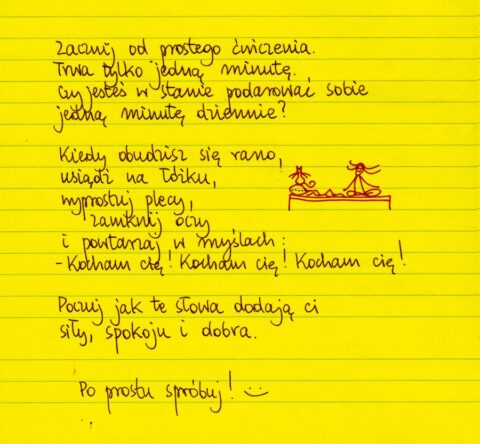 Zacznij od prostego ćwiczenia.
Trwa tylko jedną minutę.
Czy jesteś w stanie podarować sobie
jedną minutę dziennie?
Kiedy obudzisz się rano,
usiądź na łóżku,
wyprostuj plecy,
zamknij oczy
i powtarzaj w myślach:
- Kocham cię! Kocham cię! Kocham cię!
Poczuj jak te słowa dodają ci
siły, spokoju i dobra.
Po prostu spróbuj! :)